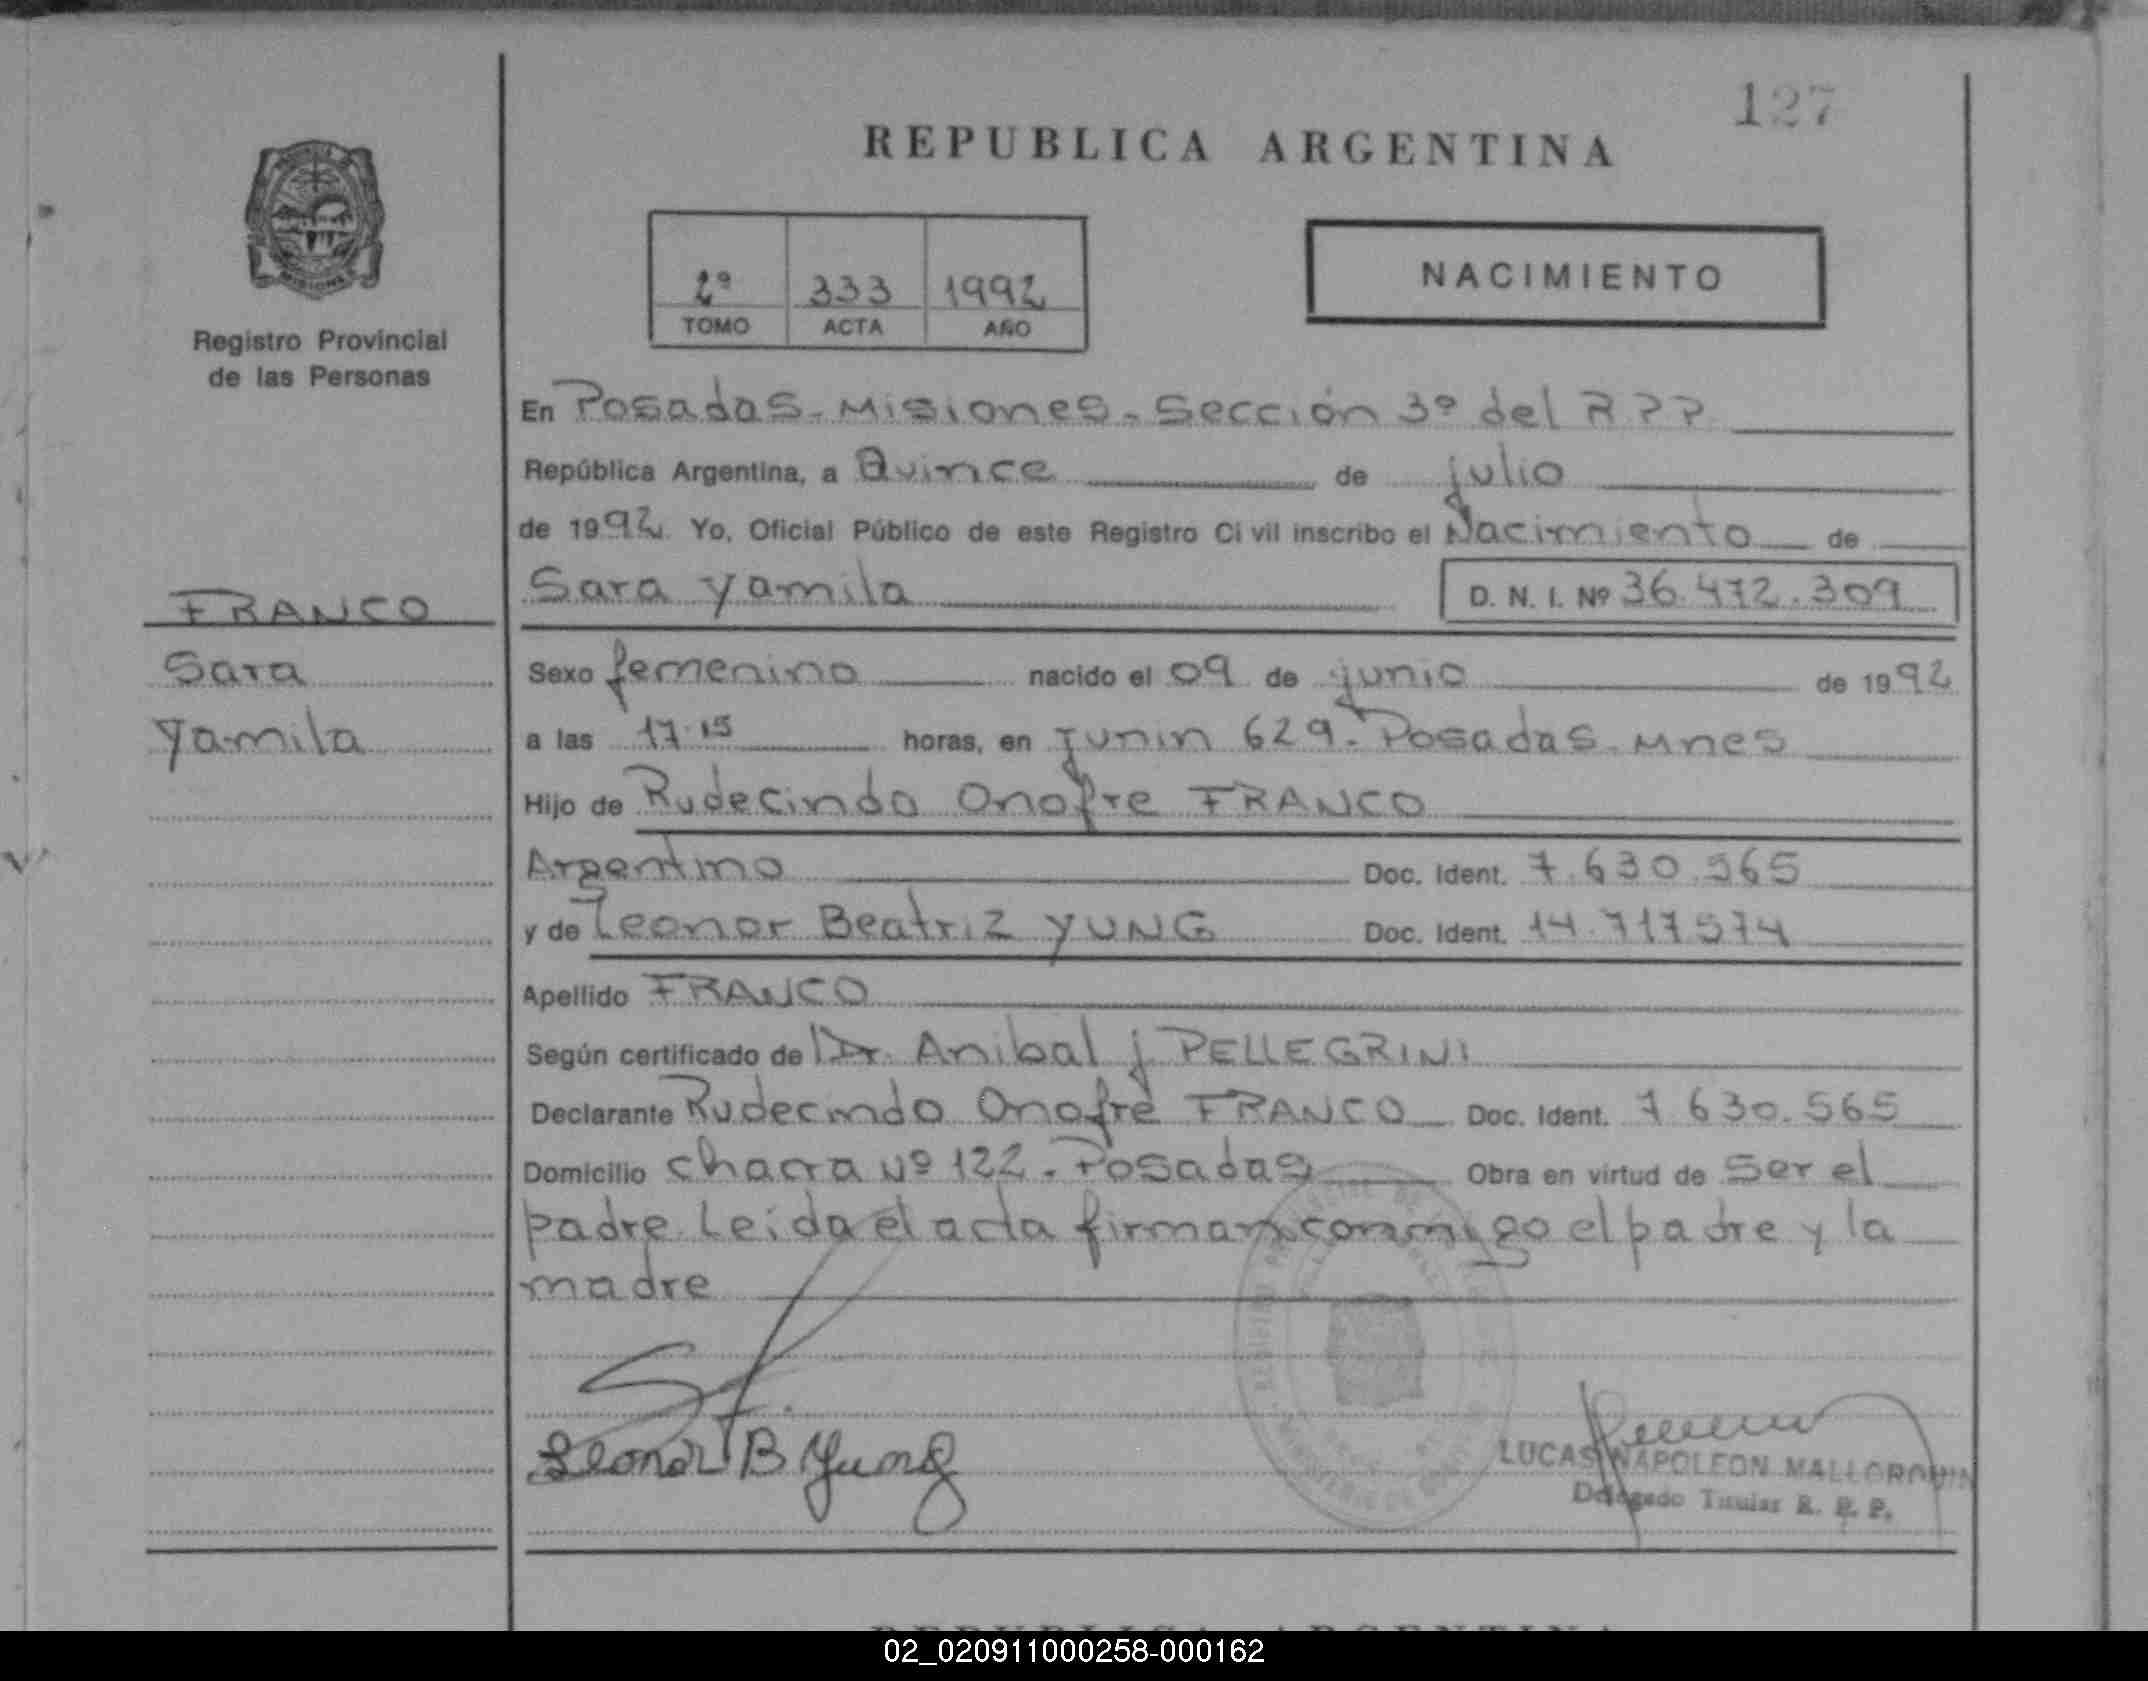 127
REPUBLICA ARGENTINA
Registro Provincial
de las Personas
2º 333 1992
TOMO ACTA AÑO
NACIMIENTO
En Posadas - Misiones - Sección 3º del R P P
República Argentina, a Quince de julio
de 1992 Yo, Oficial Público de este Registro Civil inscribo el Nacimiento de
Sara Yamila D. N. I. Nº 36.472.309
FRANCO
Sara
Yamila
Sexo femenino nacido el 09 de junio de 1992
a las 17.15 horas, en Junin 629 - Posadas - Mnes
Hijo de Rudecindo Onofre FRANCO
Argentino Doc. Ident. 7.630.565
y de Leonor Beatriz YUNG Doc. Ident. 14.717574
Apellido FRANCO
Según certificado de Dr. Anibal J PELLEGRINI
Declarante Rudecindo Onofre FRANCO Doc. Ident. 7 630.565
Domicilio chacra Nº 122 - Posadas Obra en virtud de Ser el
padre Leida el acta firman conmigo el padre y la
madre
Leonor B Yung
LUCAS NAPOLEON MALLORQUIN
Delegado Titular R. P. P.
REPUBLICA ARGENTINA
02_020911000258-000162